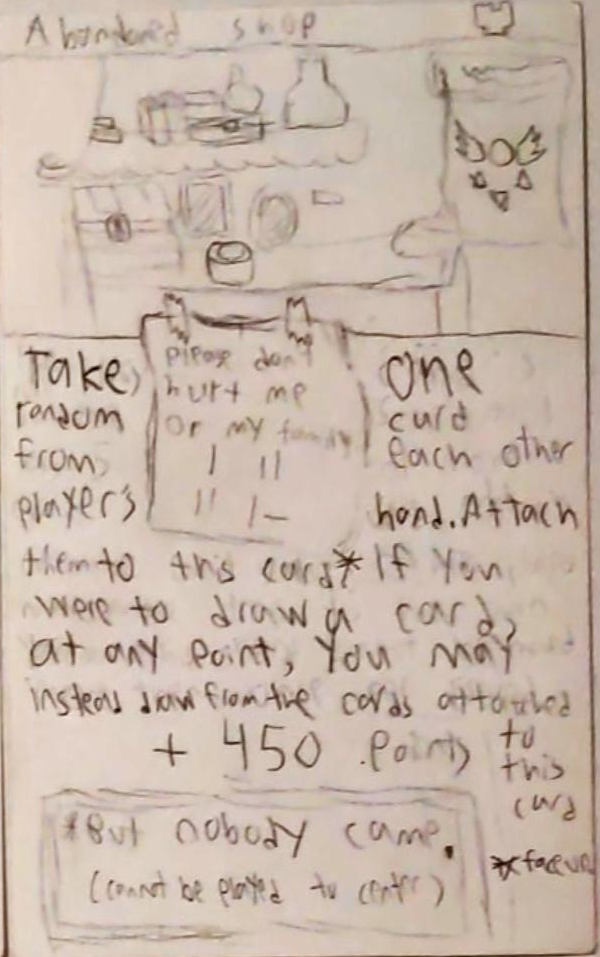 Abandoned shop
please don't
hurt me
or my family
Take one
random card
from each other
player's hand. Attach
them to this card* If you
were to draw a card,
at any point, you may
instead draw from the cards attached
to
this
card
+ 450 Points
*But nobody came.
(cannot be played to center)
*faceup